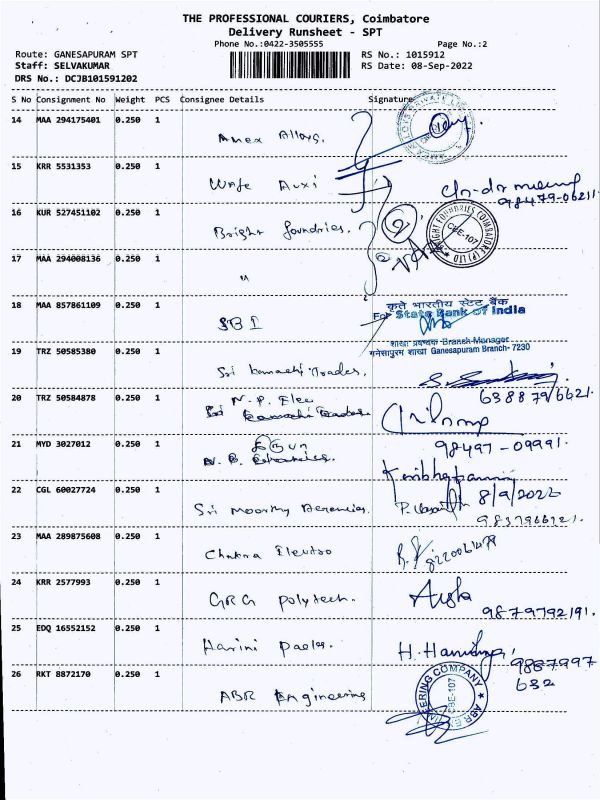 THE PROFESSIONAL COURIERS, Coimbatore
Delivery Runsheet - SPT
Phone No.:0422-3505555 Page No.:2
Route: GANESAPURAM SPT RS No.: 1015912
Staff: SELVAKUMAR RS Date: 08-Sep-2022
DRS No.: DCJB101591202
S No Consignment No Weight PCS Consignee Details Signature
14 MAA 294175401 0.250 1
Amex Alloys.
15 KRR 5531353 0.250 1
98479-06211
16 KUR 527451102 0.250 1
Bright foundries.
BRIGHT FOUNDRIES COIMBATORE (P) LTD CBE-107
17 MAA 294008136 0.250 1
"
18 MAA 857861109 0.250 1
SBI
कृते भारतीय स्टेट बैंक
For State Bank of India
शाखा प्रबन्धक Branch Manager
गनेसापुरम शाखा Ganesapuram Branch- 7230
19 TRZ 50585380 0.250 1
Sri kamachi Trades.
6388796621.
20 TRZ 50584878 0.250 1
N. P. Elec
98497-09991.
21 MYD 3027012 0.250 1
22 CGL 60027724 0.250 1
Sri Moorthy Agencies.
8/9/2022
9837966121.
23 MAA 289875608 0.250 1
Chakra Electro
24 KRR 2577993 0.250 1
GRG polytech.
9879792191.
25 EDQ 16552152 0.250 1
Harini
H.
9887997
632
26 RKT 8872170 0.250 1
ABR Engineering
ABR ENGINEERING COMPANY CBE-107